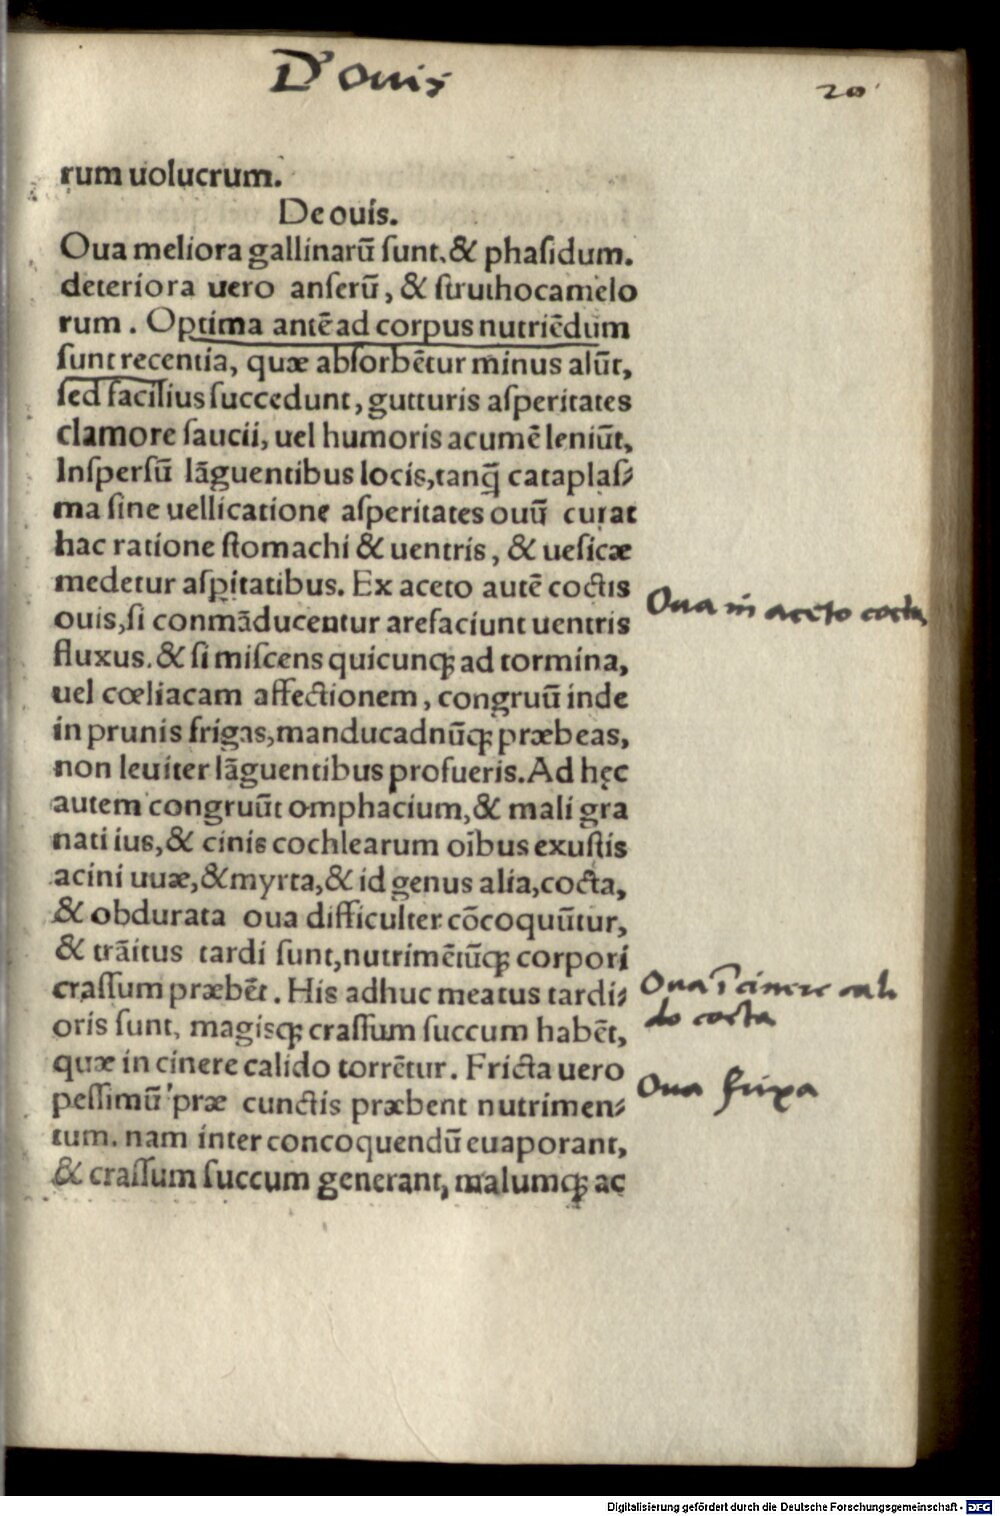 De ouis
20
rum uolucrum.
De ouis.
Oua meliora gallinarū sunt, & phasidum.
deteriora uero anserū, & struthocamelo
rum. Optima antē ad corpus nutriēdum
sunt recentia, quæ absorbētur minus alūt,
sed facilius succedunt, gutturis asperitates
clamore saucii, uel humoris acumē leniūt,
Inspersū lāguentibus locis, tanq̄ cataplas⸗
ma sine uellicatione asperitates ouū curat
hac ratione stomachi & uentris, & uesicæ
medetur asꝑitatibus. Ex aceto autē coctis
ouis, si conmāducentur arefaciunt uentris
fluxus. & si miscens quicunqꝫ ad tormina,
uel cœliacam affectionem, congruū inde
in prunis frigas, manducadnūqꝫ præbeas,
non leuiter lāguentibus profueris. Ad hęc
autem congruūt omphacium, & mali gra
nati ius, & cinis cochlearum oībus exustis
acini uuæ, & myrta, & id genus alia, cocta,
& obdurata oua difficulter cōcoquūtur,
& trāitus tardi sunt, nutrimētūqꝫ corpori
crassum præbēt. His adhuc meatus tardi⸗
oris sunt, magisqꝫ crassum succum habēt,
quæ in cinere calido torrētur. Fricta uero
pessimū præ cunctis præbent nutrimen⸗
tum. nam inter concoquendū euaporant,
& crassum succum generant, malumqꝫ ac
Oua in aceto cocta
Oua ī cinere cali
do cocta
Oua frixa
Digitalisierung gefördert durch die Deutsche Forschungsgemeinschaft - DFG